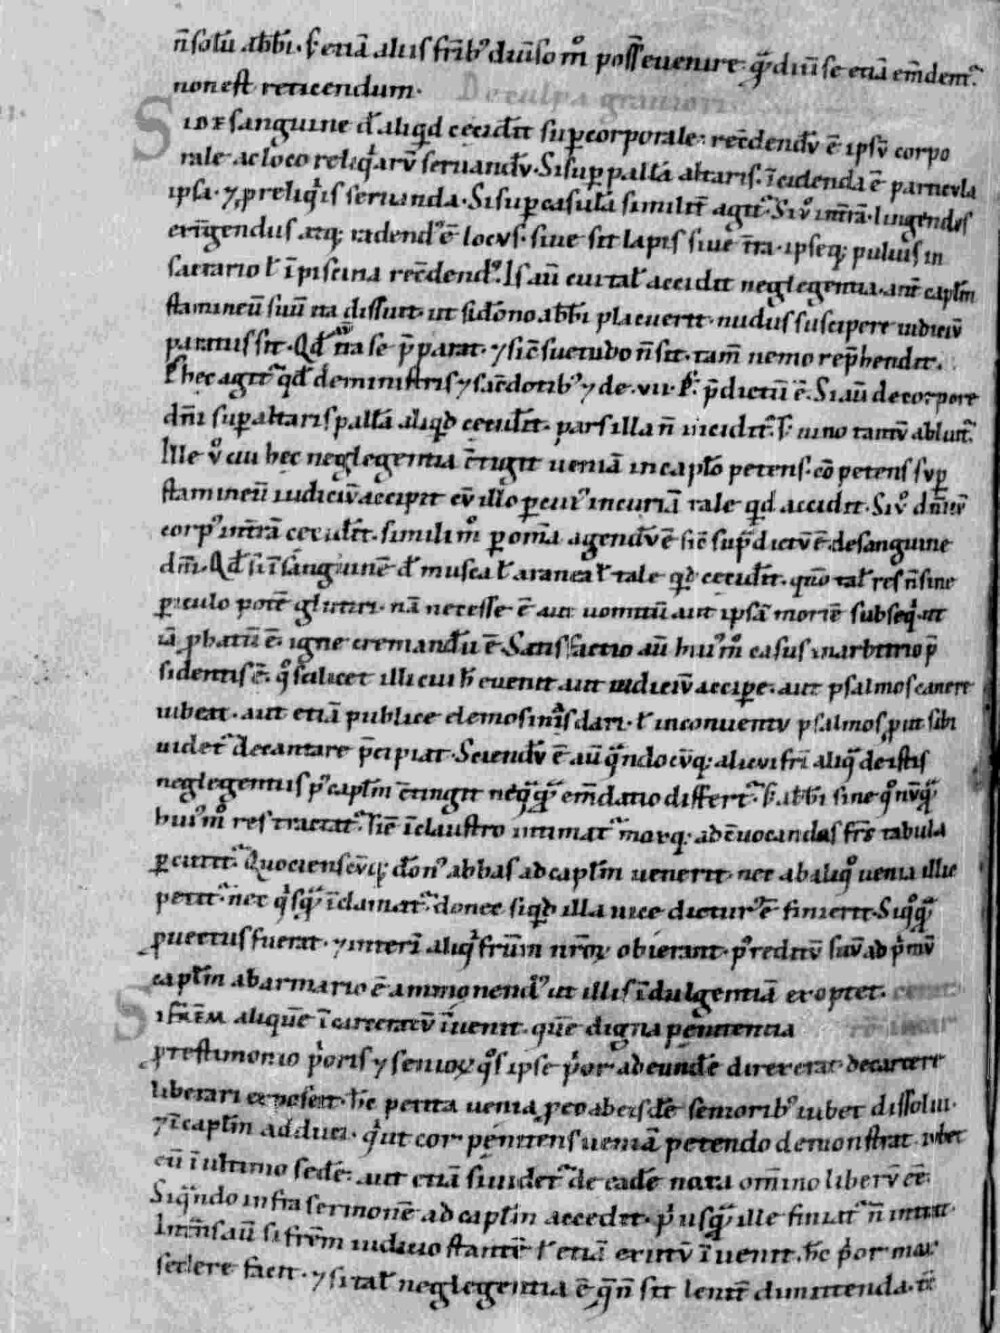 n̄ solū abb̄i · s; etiā aliis frīb; diuīso m̊ poss̄ euenire · q̄ diuīse etiā em̄dem̄t
non est reticendum · De culpa grauiori ·
Si de sanguine dn̄i aliqd̄ ceciderit sup corporale · rec̄dendū ē ipsū corpo
rale ac loco reliq̄arū seruandū · Si sup pallā altaris · īcidenda ē particula
ipsa · ⁊ p reliq̄is seruanda · Si sup casulā similit̄ agit̄ · Si ū in t̄rā · lingendus
erīgendus atq; radend; ē locus · siue sit lapis siue t̄ra · ipseq; puluis in
sacrario ł ī piscina rec̄dend; · Is aū cui tał accidit neglegentia · ante capłm
stamineū suū ita dissuit · ut si dōno abb̄i placuerit · nudus suscipere iudiciū
paratus sit · Qd̄ ita se p̄parat · ⁊ si c̄suetudo n̄ sit · tam̄ nemo rep̄hendit ·
hec agit̄ qd̄ de ministris ⁊ sac̄dotib; ⁊ de · vii · p̄dictū ē · Si aū de corpore
dn̄i sup altaris pallā aliqd̄ cecidit · pars illa n̄ inciditr̄ · s; uino tantū abluit̄
Ille ū cui hec neglegentia c̄tigit ueniā in capło petens · petens sup
stamineū iudiciū accipit cū illo p cui; incuriā tale qd̄ accidit · Si ū dn̄icū
corp; in t̄rā cecidit · simili m̊ p om̄ia agendū ē sic sup̄dictū ē de sanguine
dn̄i · Qd̄ si ī sanguinē dn̄i musca ł aranea ł tale qd̄ cecidit · qn̄o tał res n̄ sine
piculo potē glutiri · nā necesse ē aut uomitū aut ipsā mortē subseq̄ · ut
iā pbatū ē · igne cremandū ē · Satisfactio aū hui; m̊ casus in arbitrio p̄
sidentis ē · q̊ scilicet illi cui h̄ euenit aut iudiciū accipe · aut psalmos canere
iubeat · aut etiā publice elemosinas dari · ł in conuentu psalmos put sibi
uidet̄ decantare p̄cipiat · Sciendū ē aū qn̄do cūq; alicui frī aliq̄ de istis
neglegentiis p; capłm c̄tingit neq̄q̄ em̄datio differt̄ · s; abb̄i sine q̊ nūq̄
hui; m̊ res tractat̄ · hec ī claustro intimat̄ · moxq; ad c̄uocandos frs̄ tabula
pcutit̄ · Quociensc̄uq; dōn; abbas ad capłm uenerit · nec ab aliq̊ uenia illic
petit̄ · nec q̄sq̄ ī clamat̄ · donec si qd̄ illa uice dictur; ē finierit · Si q̊q̄
puectus fuerat · ⁊ interī aliq̄ frūm nr̄oꝝ obierant · p; reditū suū ad p̄mū
capłm ab armario ē ammonend; ut illis īdulgentiā exoptet ·
Si frēm aliquē ī carceratū īuenit · quē digna penitentia
p testimonio p̄oris ⁊ senioꝝ q̊s ipse p̄or ad eundē direxerat de carcere
liberari exposcit · hc̄ petita uenia p eo ab eisdē seniorib; iubet dissolui ·
⁊ ī capłm adduci · q̄ ut cor penitens ueniā petendo demonstrat · iubet
eū ī ultimo sedē · aut etiā si uidet̄ de eadē nota om̄ino liberū eē ·
Si qn̄do infra sermonē ad capłm accedit · p̄usq̄ ille finiat̄ n̄ intrat ·
Intrans aū si frēm iudicio stantē ł etiā exutū īuenit · hc̄ p̄or mox
sedere facit · ⁊ si tał neglegentia ē q̄ n̄ sit lenit̄ dimittenda ·